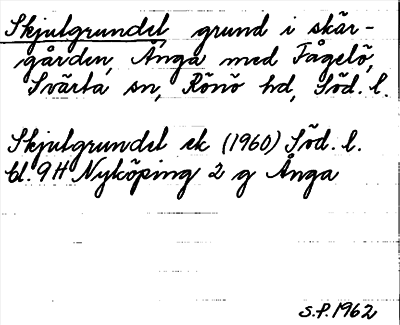 Skjutgrundet, grund i skär-
gården, Ånga med Fågelö,
Svärta sn, Rönö hd, Söd. l.
Skjutgrundet ek (1960) Söd. l.
bl. 9H Nyköping 2 g Ånga
S.P. 1962